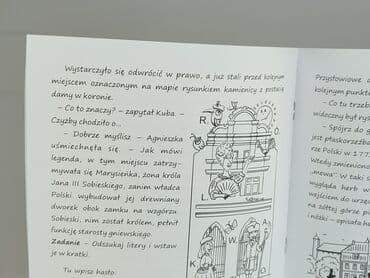 Wystarczyło się odwrócić w prawo, a już stali przed kolejnym
miejscem oznaczonym na mapie rysunkiem kamienicy z postacią
damy w koronie.
– Co to znaczy? – zapytał Kuba. –
Czyżby chodziło o...
– Dobrze myślisz – Agnieszka
uśmiechnęła się. – Jak mówi
legenda, w tym miejscu zatrzy-
mywała się Marysieńka, żona króla
Jana III Sobieskiego, zanim władca
Polski wybudował jej drewniany
dworek obok zamku na wzgórzu.
Sobieski, nim został królem, pełnił
funkcję starosty gniewskiego.
Zadanie – Odszukaj litery i wstaw
je w kratki.
Tu wpisz hasło:
R
O
L
K
W
A
Przysłowiowe
kolejnym punktem
– Co tu trzeb
widoczny był rys
– Spójrz do g
jest płaskorzeźba
rze Polski w 177
Wtedy zmieniono
"mewa". W taki s
wygląda herb w
na żółtej górze p
i nóżki – opisała he